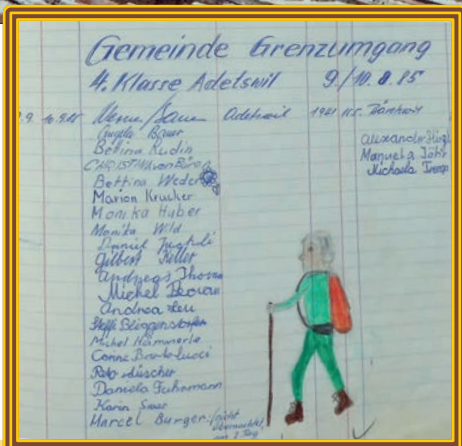 Gemeinde Grenzumgang
4. Klasse Adetswil 9./10. 9. 85
Werner Bauer Adetswil 1921
Bauer
Bettina Rudin
CHRISTINA von Büren
Bettina Weder
Marion Krucker
Monika Huber
Monika Wild
Daniel
Gilbert Keller
Andreas Thoma
Michel
Andrea
Steffi Bliggenstorfer
Michel Hämmerle
Corine Bortolucci
Reto Lüscher
Daniela Fuhrmann
Karin
Marcel Burger (nicht
übernachtet,
am 2. Tag
Alexander
Manuela
Michaela